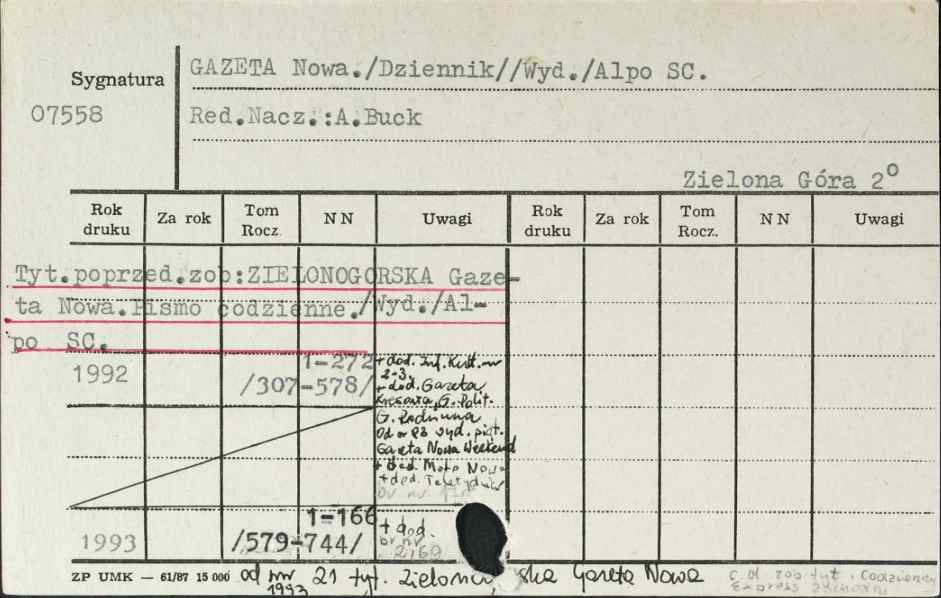 Sygnatura
07558
GAZETA Nowa./Dziennik//Wyd./Alpo SC.
Red.Nacz.:A.Buck
Zielona Góra 2º
Rok druku Za rok Tom Rocz. NN Uwagi Rok druku Za rok Tom Rocz. NN Uwagi
Tyt.poprzed.zob:ZIELONOGORSKA Gaze-
ta Nowa.Pismo codzienne./Wyd./Al-
po SC.
1992 1-272
/307-578/
+ dod. Inf. Kult. nr
2-3,
+ dod. Gazeta
Kresowa, G. Polit.
G. Rodzinna
Od nr 83 wyd. piąt.
Gazeta Nowa Weekend
+ dod. Moto Nowa
+ dod.
br nr
1993 1-166
/579-744/
+ dod.
br nr
2,160
ZP UMK — 61/87 15 000 od nr 21 tyt. Gazeta Nowa
1993
c.d. zob tyt.